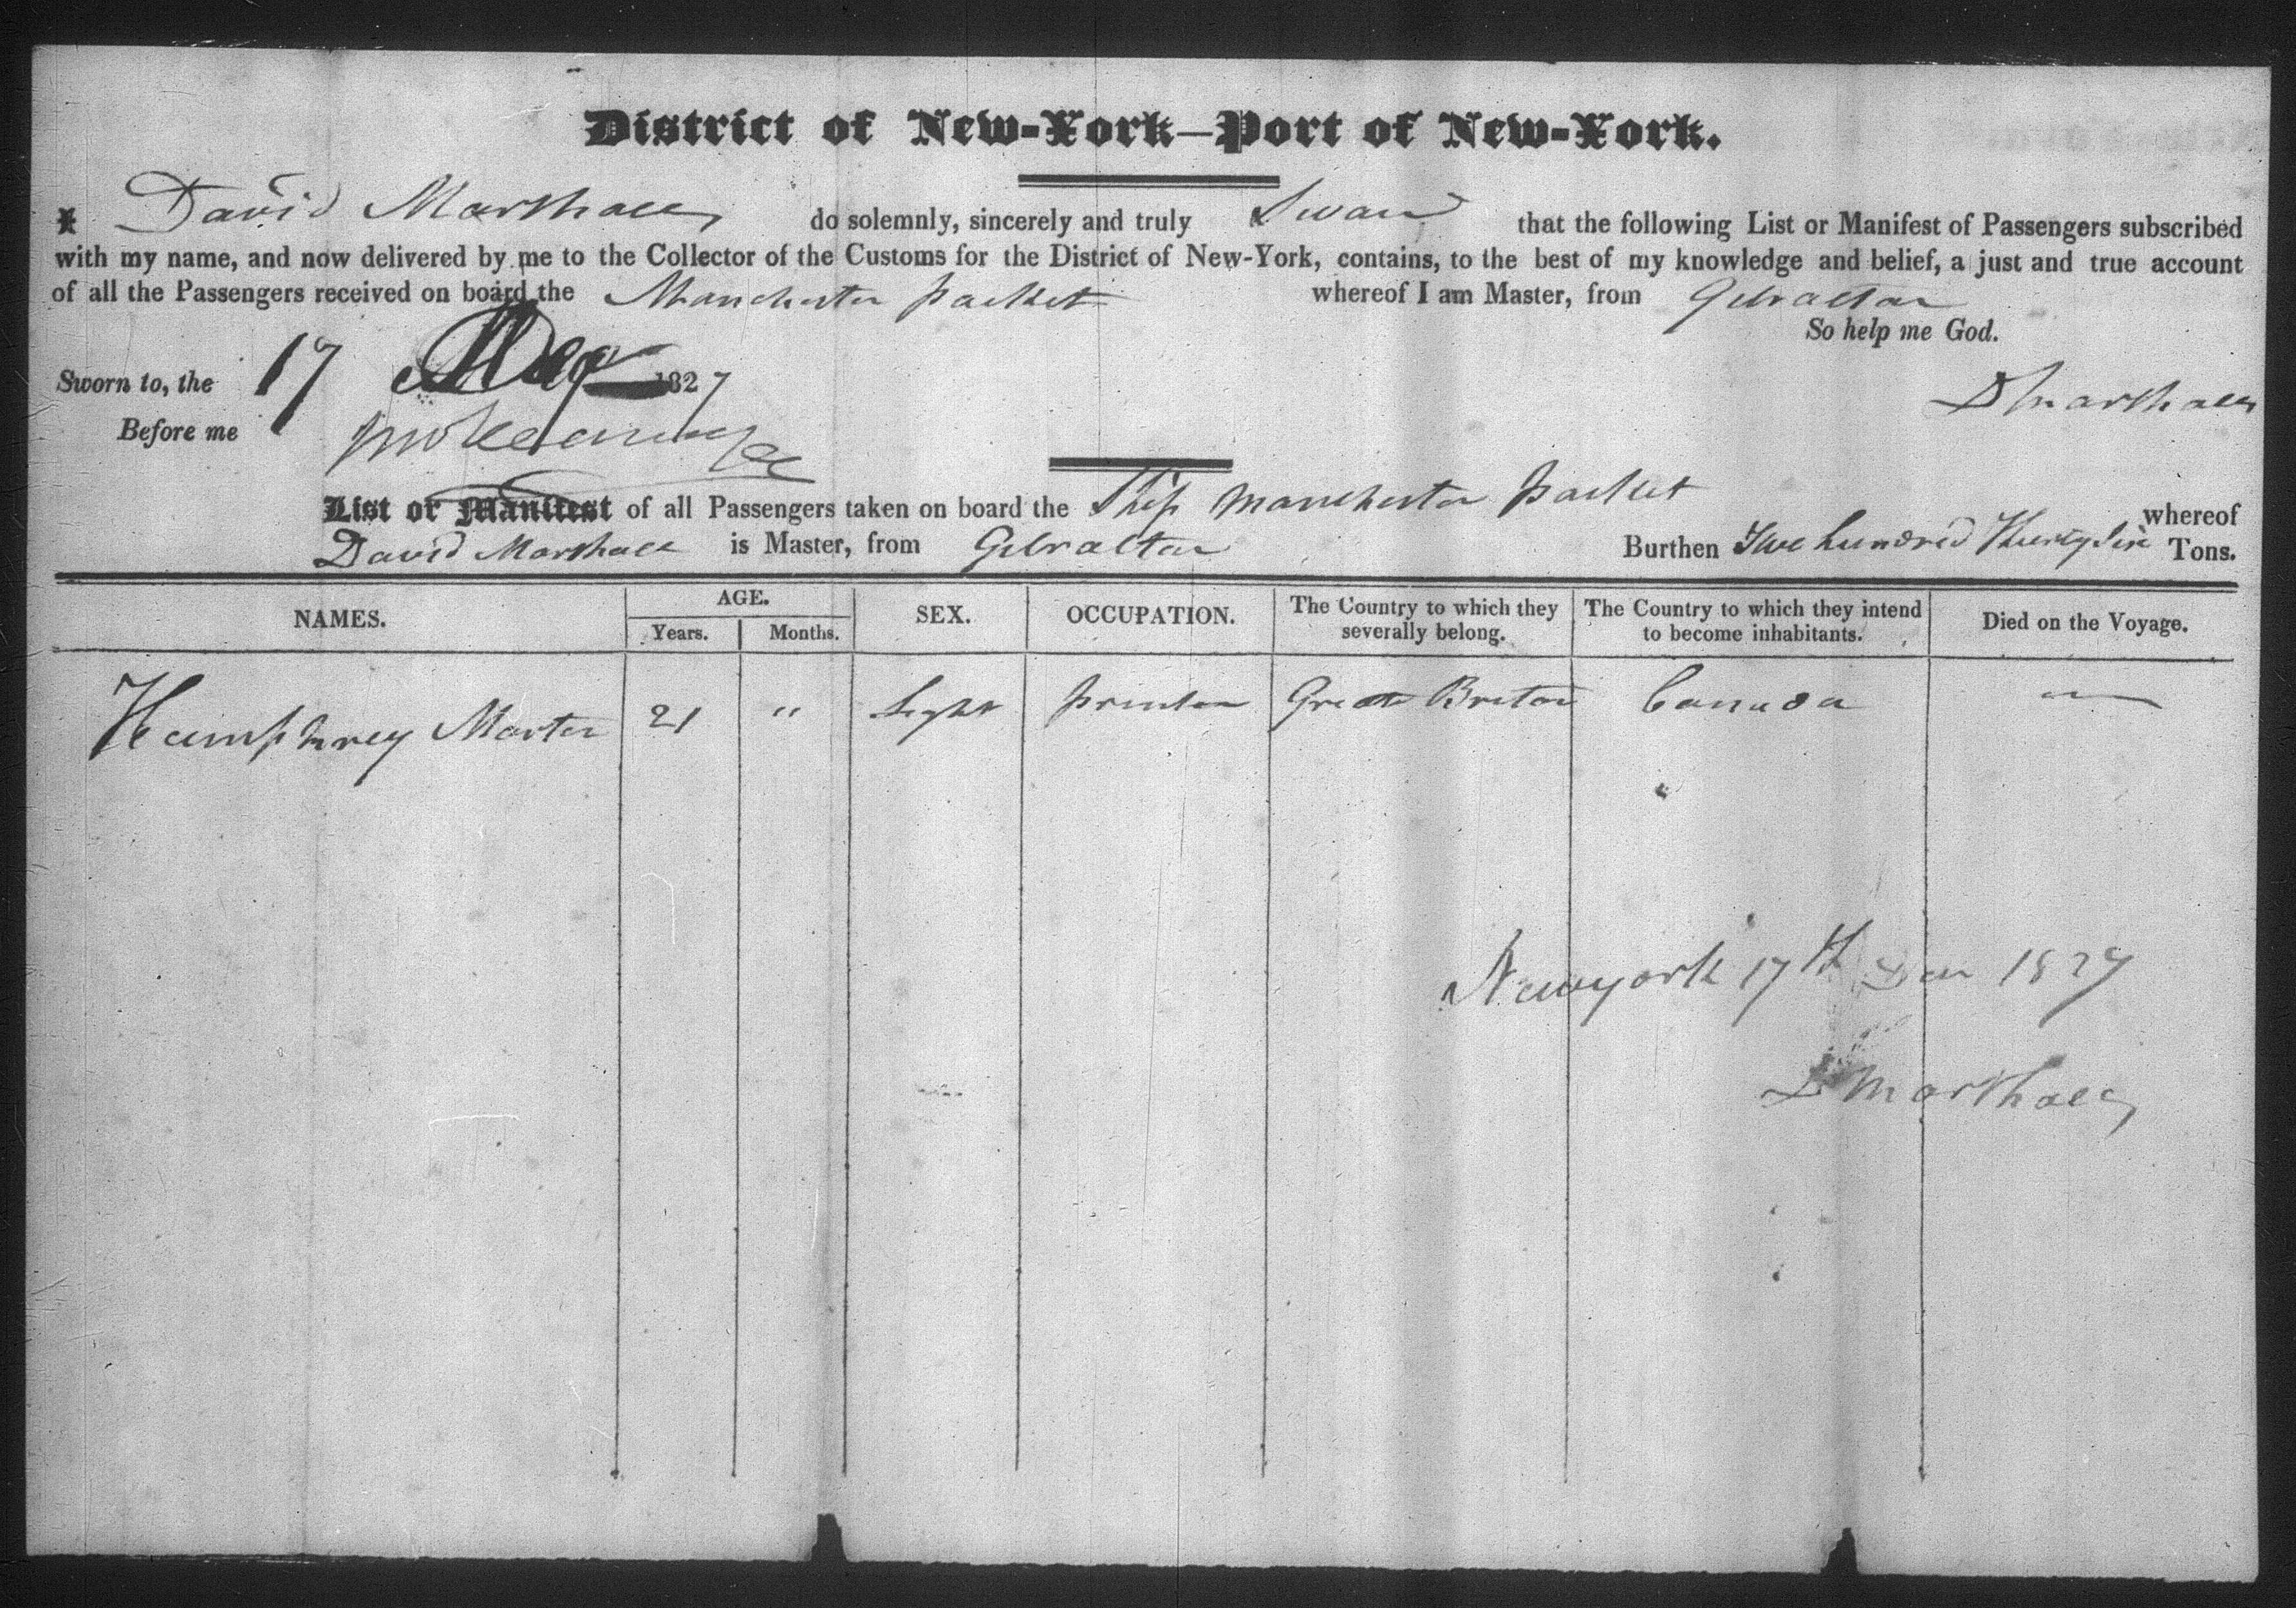 District of New-York—Port of New-York.
I David Marshall do solemnly, sincerely and truly Swear that the following List or Manifest of Passengers subscribed
with my name, and now delivered by me to the Collector of the Customs for the District of New-York, contains, to the best of my knowledge and belief, a just and true account
of all the Passengers received on board the Manchester packet whereof I am Master, from Gibraltar
So help me God.
Sworn to, the 17 1827
D Marshall
Before me
List or Manifest of all Passengers taken on board the Ship Manchester packet whereof
David Marshall is Master, from Gibraltar Burthen Two hundred Thirty Tons.
NAMES. AGE. SEX. OCCUPATION. The Country to which they severally belong. The Country to which they intend to become inhabitants. Died on the Voyage.
Years. Months.
Humphrey Marter 21 " Great Britan Canada —
Newyork 17th Dec 1827
D Marshall